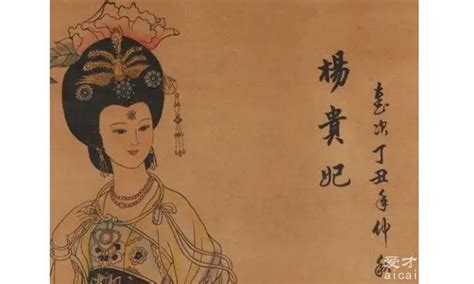 歲次丁丑年仲秋
楊貴妃
爱才
aicai